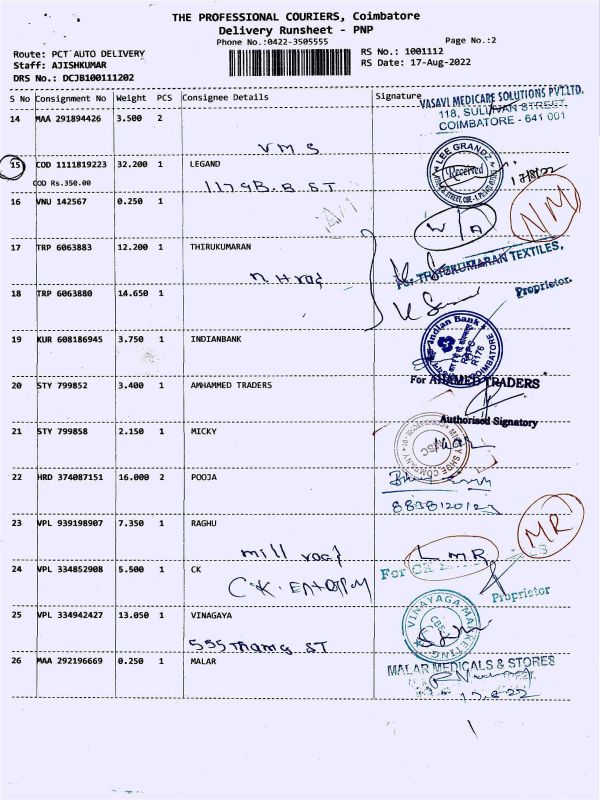 THE PROFESSIONAL COURIERS, Coimbatore
Delivery Runsheet - PNP
Phone No.:0422-3505555
Page No.:2
Route: PCT AUTO DELIVERY
RS No.: 1001112
Staff: AJISHKUMAR
RS Date: 17-Aug-2022
DRS No.: DCJB100111202
S No Consignment No Weight PCS Consignee Details Signature
VASAVI MEDICARE SOLUTIONS PVT.LTD.
118, SULLIVAN STREET,
COIMBATORE - 641 001
14 MAA 291894426 3.500 2
VMS
15 COD 1111819223 32.200 1 LEGAND
LEE GRANDZ
Received
COD Rs.350.00
16 VNU 142567 0.250 1
NM
17 TRP 6063883 12.200 1 THIRUKUMARAN
For THIRUKUMARAN TEXTILES,
Proprietor.
18 TRP 6063880 14.650 1
19 KUR 608186945 3.750 1 INDIANBANK
Indian Bank
COIMBATORE
20 STY 799852 3.400 1 AMHAMMED TRADERS
For AHAMED TRADERS
Authorised Signatory
21 STY 799858 2.150 1 MICKY
22 HRD 374087151 16.000 2 POOJA
23 VPL 939198907 7.350 1 RAGHU
MR
mill road
LMR
24 VPL 334852908 5.500 1 CK
For CK
Proprietor
25 VPL 334942427 13.050 1 VINAGAYA
VINAYAGA MARKETING
26 MAA 292196669 0.250 1 MALAR
MALAR MEDICALS & STORES